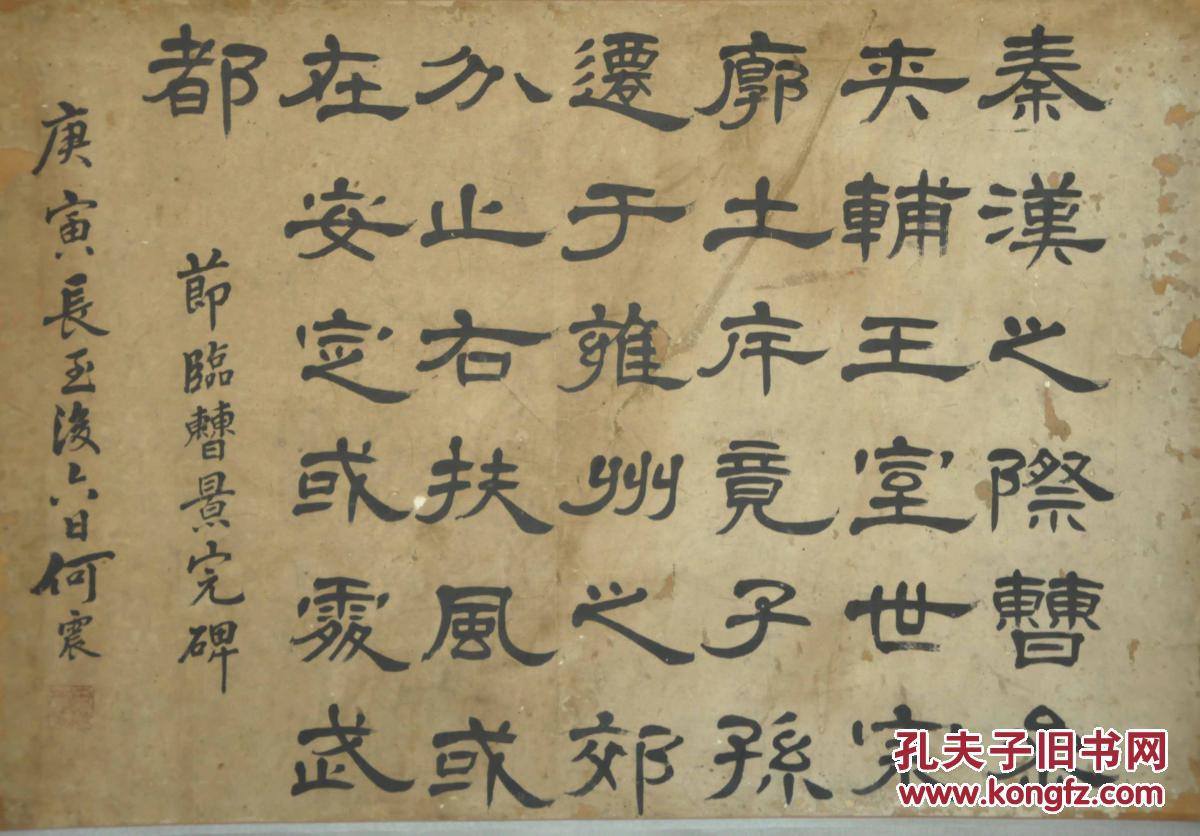 秦漢之際曹參
夾輔王室世宗
廓土斥竟子孫
遷于雍州之郊
分止右扶風或
在安定或處武
都
節臨曹景完碑
庚寅長至後六日何震
孔夫子旧书网
www.kongfz.com